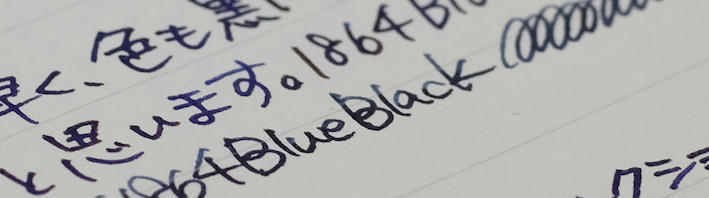 早く、色も黒
と思います。1864 Bl
1864 BlueBlack
クシ